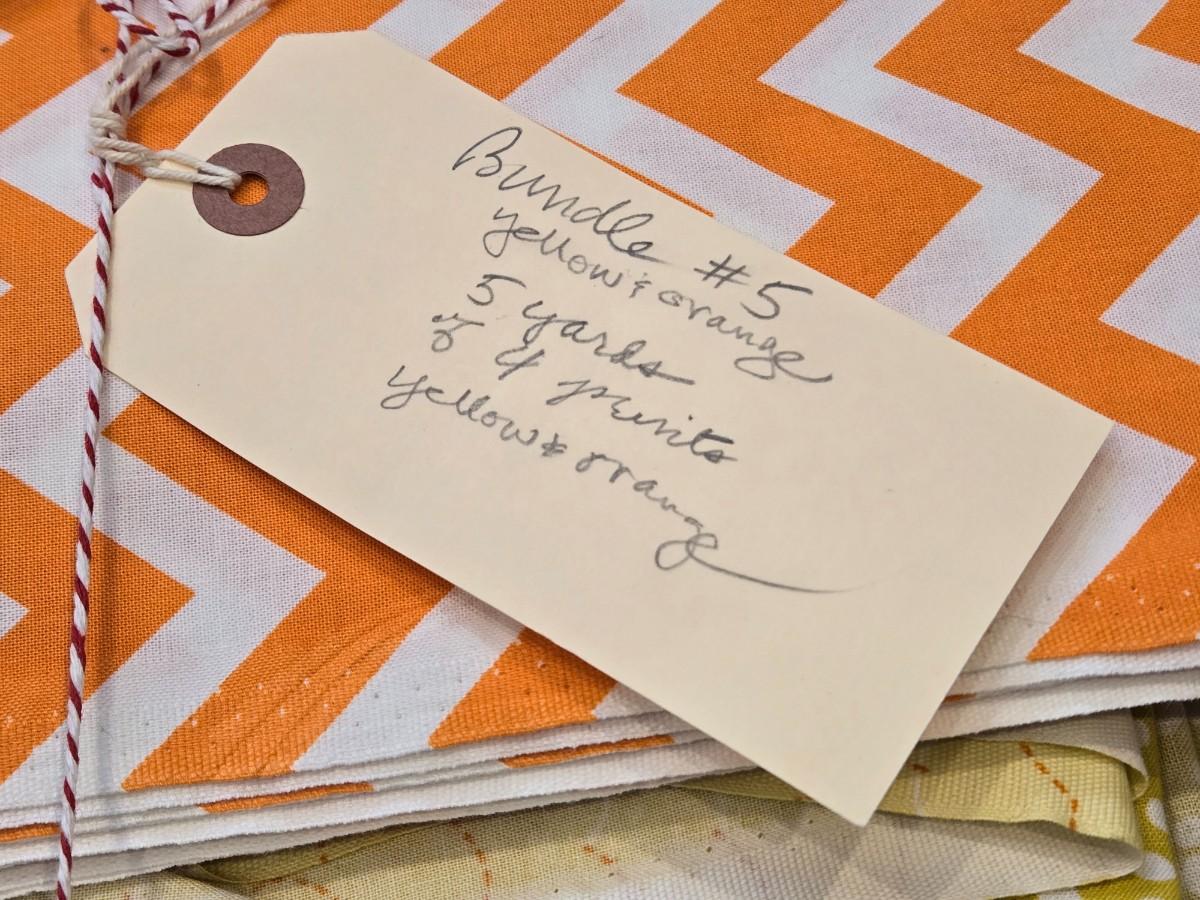 Bundle #5
yellow & orange
5 yards
of 4 prints
yellow & orange